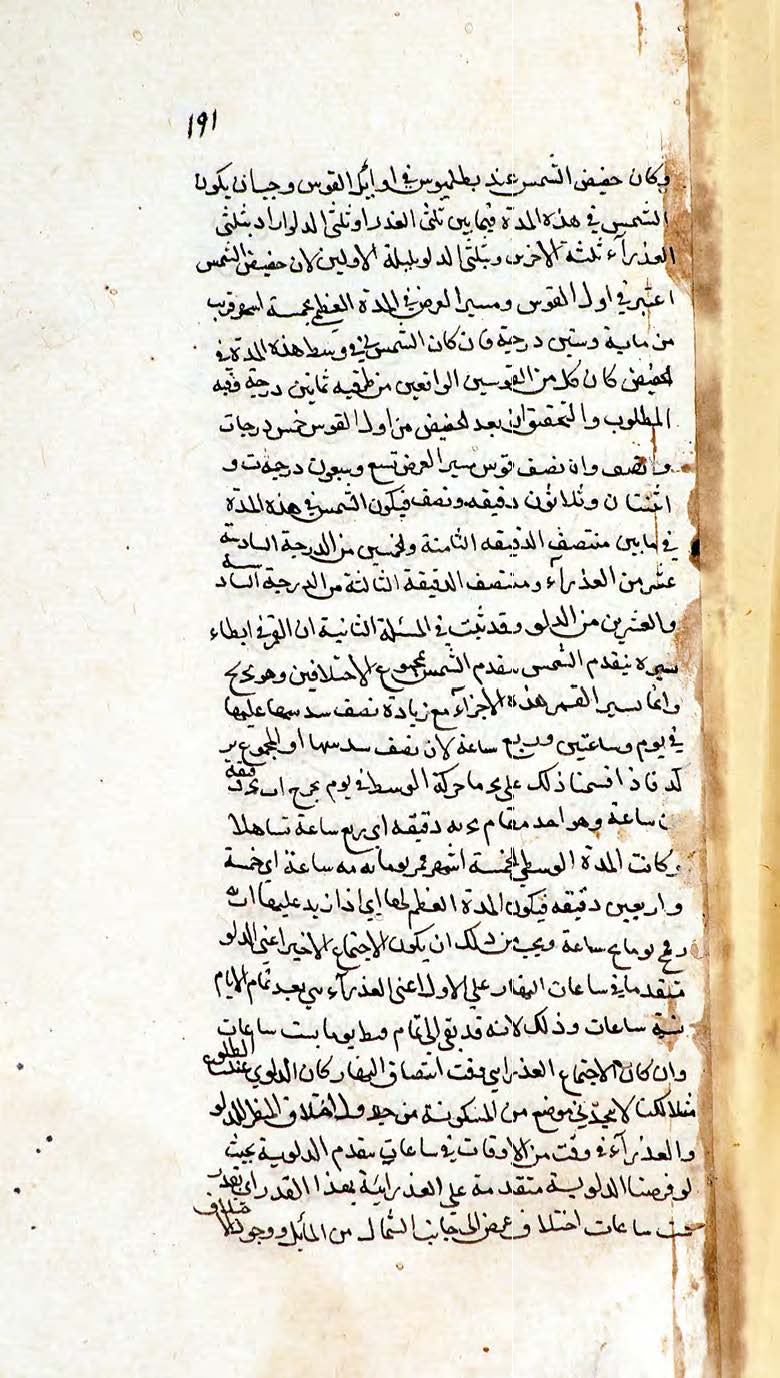 ١٩١
وكان حضيض الشمس عند بطلميوس في اوايل القوس وجب ان يكون
الشمس في هذه المدة فيما بين ثلثى العذرا وثلثى الدلو اراد بثلثى
العذرآء ثلثه الاخرين وبثلثي الدلو ثليثه الاولين لان حضيض الشمس
اعتبر في اول القوس ومسير العرض في المدة العظمى بخمسة اشهر قريب
من ماية وستين درجة فان كان الشمس في وسط هذه المدة في
الحضيض كان كل من القوسين الواقعين من طرفيه ثمانين درجة وفيه
المطلوب والتحقيق ان بعد الحضيض من اول القوس خمس درجات
ونصف وان نصف قوس مسير العرض تسع وسبعون درجة و
اثنتان وثلاثون دقيقه ونصف فيكون الشمس في هذه المدة
في ما بين منتصف الدقيقه الثامنة والخمسين من الدرجة السادسة
عشر من العذرآء ومنتصف الدقيقة الثالثة من الدرجة السادسة
والعشرين من الدلو وقد ثبت في المسئلة الثانية ان القمر في ابطاء
سيره يتقدم الشمس بمجموع الاختلافين وهو
وانما يسير القمر هذه الاجزآء مع زيادة نصف سدسها عليها
في يوم وساعتين وربع ساعة لان نصف سدسها والمجموع
كد فاذا قسمنا ذلك على ما حركة الوسط في يوم يخرج دقيقة
ساعة وهو احد مقام دقيقه اى ربع ساعة تساهلا
وكانت المدة الوسطى لخمسة اشهر قمر يوما ساعة اى خمسة
واربعين دقيقه فيكون المدة العظمى لها اي اذا زيد عليها
يوما ساعة ويجب من ذلك ان يكون الاجتماع الاخير اعني الدلو
متقدما في ساعات النهار على الاول اعنى العذرآء بعد تمام الايام
ساعات وذلك لانه قد بقى الى تمام يوما ست ساعات
وان كان الاجتماع العذرايي وقت انتصاف النهار كان الدلوي عند الطلوع
مثلا لكنا لا نجد في موضع من المسكونة من جدول اختلاف المنظر للدلو
والعذرآء في وقت من الاوقات في ساعات يتقدم الدلوية بحيث
لو فرضنا الدلوية متقدمة على العذرائية بهذا القدر اى بقدر
ست ساعات اختلاف عرض الى جانب الشمال من المايل ووجود اختلاف